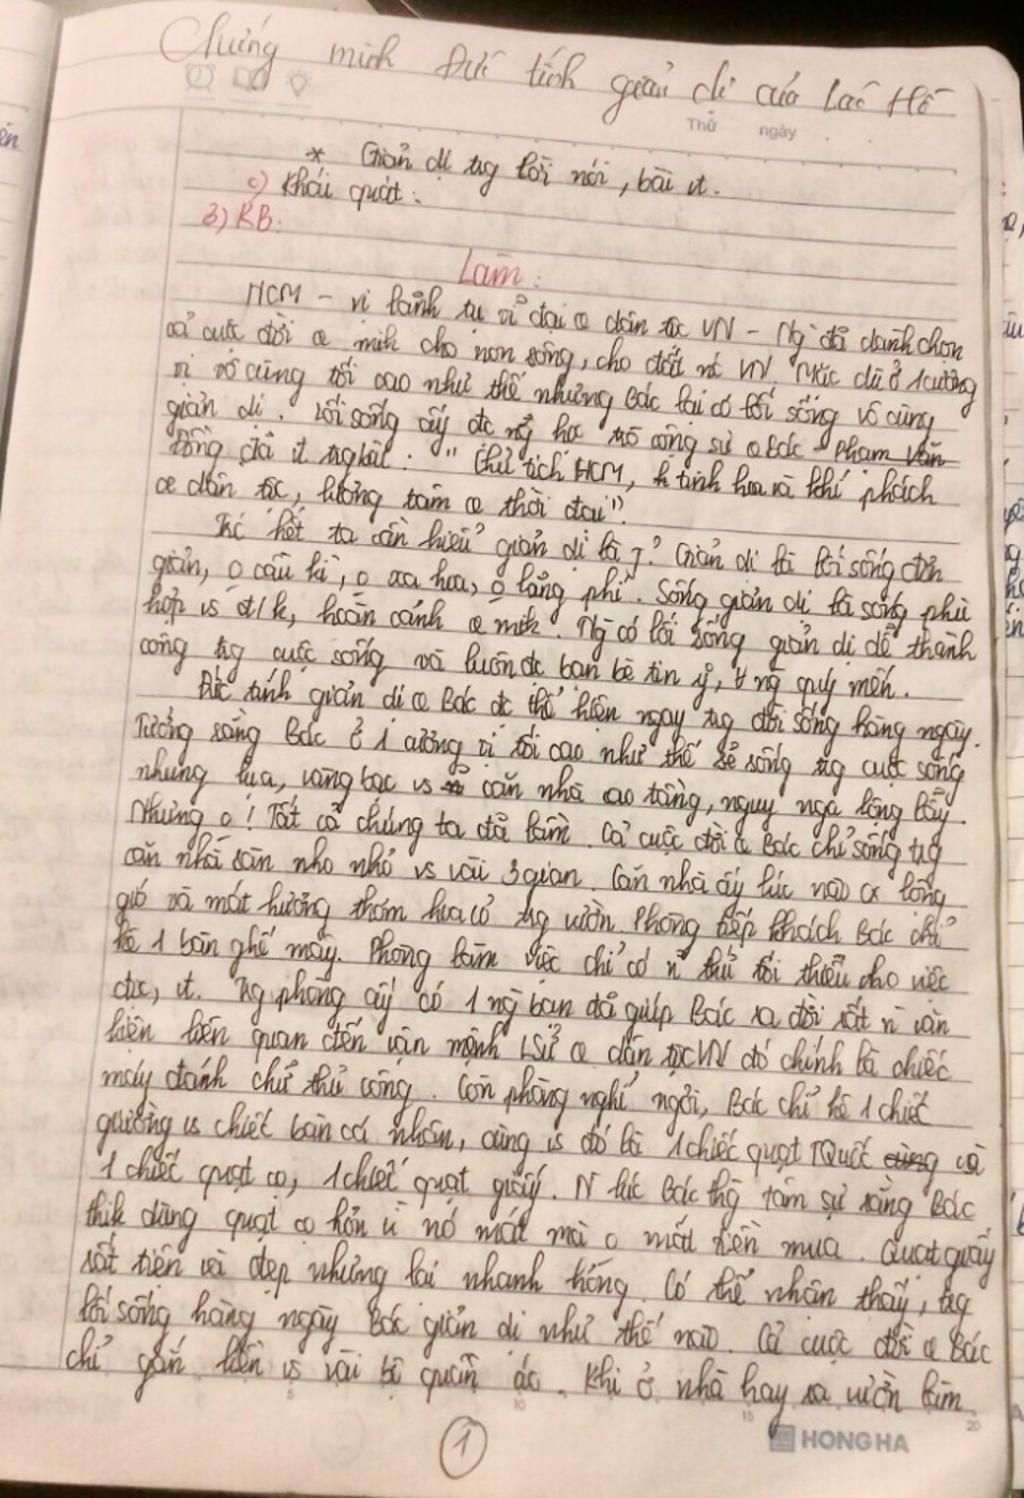 Chứng minh đức tính giản dị của Lão Hồ
Thứ ngày
* Giản dị tg lời nói, bài vt.
c) Khái quát:
3) KB:
Làm:
HCM - vị lãnh tụ vĩ đại dân tộc VN - Ng đã dành chọn
cả cuộc đời mih cho non sông, cho đất nc VN. Mặc dù ở 1 cương
vị vô cùng tối cao như thế nhưng Bác lại có lối sống vô cùng
giản dị. Lối sống ấy đc ng học trò cộng sự Bác - Phạm Văn
Đồng đã vt tg bài: "Chủ tịch HCM, tinh hoa và khí phách
dân tộc, lương tâm thời đại".
Trc hết ta cần hiểu giản dị là j? Giản dị là lối sống đơn
giản, 0 cầu kì, 0 xa hoa, 0 lãng phí. Sống giản dị là sống phù
hợp vs đ/k, hoàn cảnh mih. Ng có lối sống giản dị dễ thành
công tg cuộc sống và luôn đc bạn bè tin ý, ng quý mến.
Đức tính giản dị Bác đc thể hiện ngay tg đời sống hàng ngày.
Tưởng rằng Bác ở 1 cương vị tối cao như thế sẽ sống tg cuộc sống
nhung lụa, vàng bạc vs căn nhà cao tầng, nguy nga lộng lẫy.
Nhưng 0! Tất cả chúng ta đã lầm. Cả cuộc đời Bác chỉ sống tg
căn nhà sàn nho nhỏ vs vài 3 gian. Căn nhà ấy lúc nào cx lộng
gió và mát hương thơm hoa cỏ tg vườn. Phòng tiếp khách Bác chỉ
kê 1 bàn ghế mây. Phòng làm việc chỉ có n thứ tối thiểu cho việc
đọc, vt. Tg phòng ấy có 1 ng bạn đã giúp Bác ra đời rất n văn
kiện liên quan đến vận mệnh LSử dân tộc VN đó chính là chiếc
máy đánh chữ thủ công. Còn phòng nghỉ ngơi, Bác chỉ kê 1 chiếc
giường vs chiếc bàn cá nhân, cùng vs đó là 1 chiếc quạt TQuốc và
1 chiếc quạt cọ, 1 chiếc quạt giấy. N lúc Bác thg tâm sự rằng Bác
thik dùng quạt cọ hơn vì nó mát mà 0 mất tiền mua. Quạt giấy
rất tiện và đẹp nhưng lại nhanh hỏng. Có thể nhận thấy, tg
lối sống hàng ngày Bác giản dị như thế nào. Cả cuộc đời Bác
chỉ gắn liền vs vài bộ quần áo. Khi ở nhà hay ra vườn làm
1
HONG HA